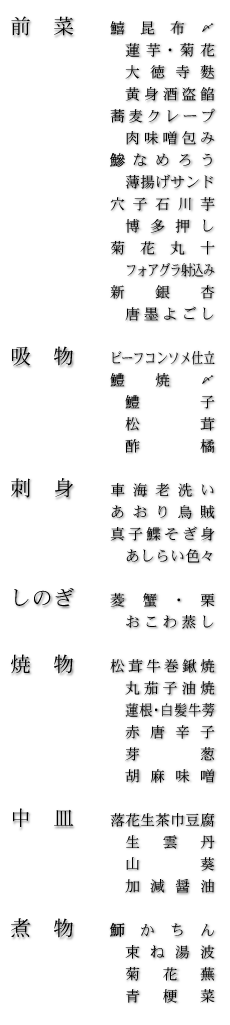 前菜 鱚昆布〆
蓮芋・菊花
大徳寺麩
黄身酒盗餡
蕎麦クレープ
肉味噌包み
鰺なめろう
薄揚げサンド
穴子石川芋
博多押し
菊花丸十
フォアグラ射込み
新銀杏
唐墨よごし
吸物 ビーフコンソメ仕立
鱧焼〆
鱧子
松茸
酢橘
刺身 車海老洗い
あおり烏賊
真子鰈そぎ身
あしらい色々
しのぎ 菱蟹・栗
おこわ蒸し
焼物 松茸牛巻鍬焼
丸茄子油焼
蓮根・白髪牛蒡
赤唐辛子
芽葱
胡麻味噌
中皿 落花生茶巾豆腐
生雲丹
山葵
加減醤油
煮物 鰤かちん
束ね湯波
菊花蕪
青梗菜